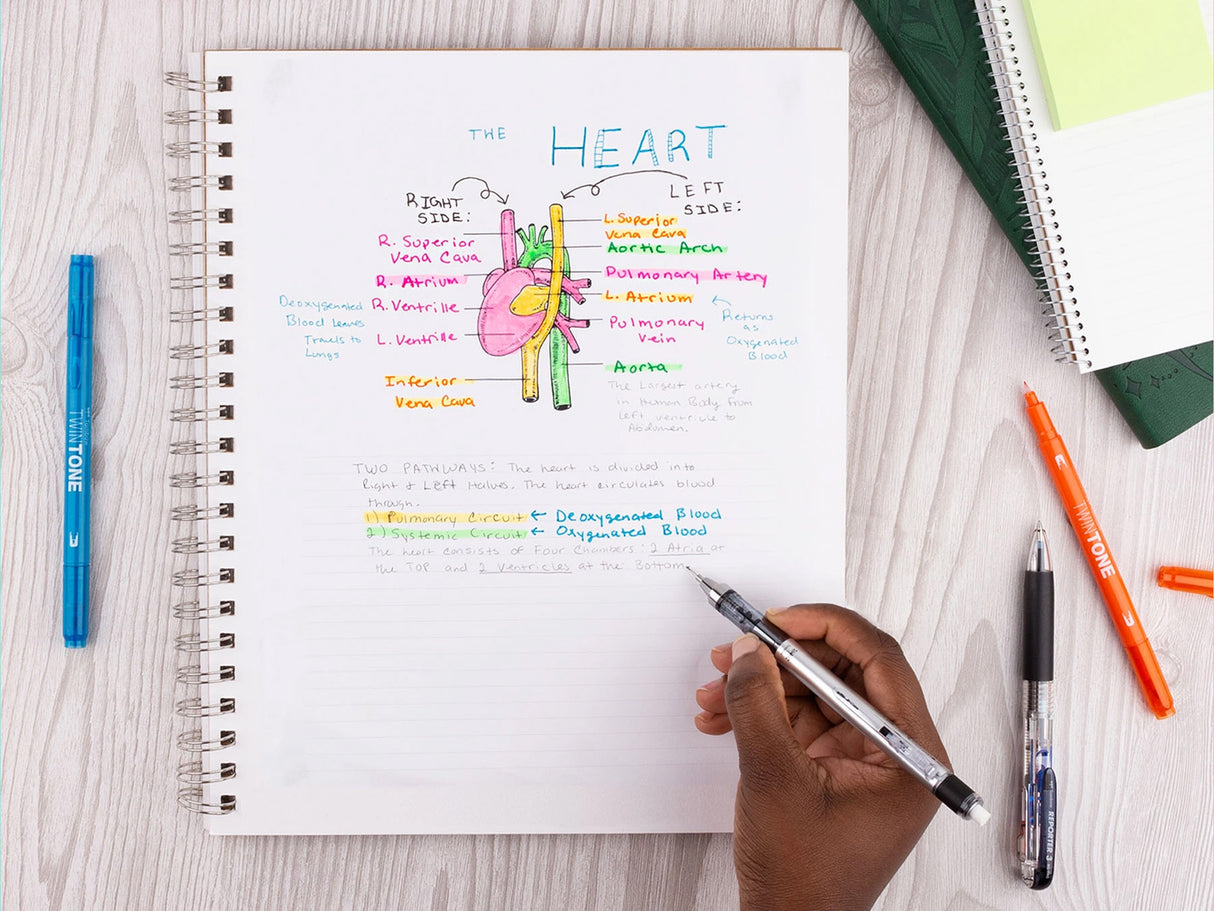 THE HEART
RIGHT
SIDE:
LEFT
SIDE:
R. Superior
Vena Cava
R. Atrium
R. Ventrille
L. Ventrille
Inferior
Vena Cava
Deoxygenated
Blood Leaves
Travels to
Lungs
L. Superior
Vena Cava
Aortic Arch
Pulmonary Artery
L. Atrium
Pulmonary
Vein
Aorta
Returns
as
Oxygenated
Blood
The Largest artery
in Human Body From
Left ventricle to
Abdomen.
TWO PATHWAYS: The heart is divided into
Right & Left Halves. The heart circulates blood
through.
1) Pulmonary Circuit ← Deoxygenated Blood
2) Systemic Circuit ← Oxygenated Blood
The heart consists of Four Chambers: 2 Atria at
the TOP and 2 Ventricles at the Bottom
TWINTONE
TWINTONE
REPORTER 3